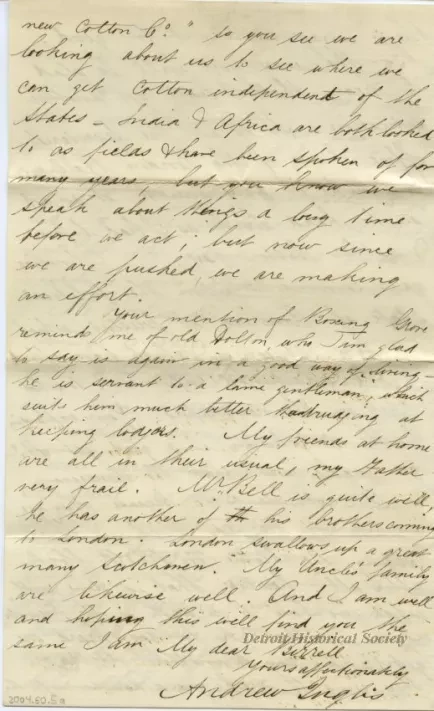 new Cotton Co." so you see we are
looking about us to see where we
can get Cotton independent of the
States – India & Africa are both looked
to as fields & have been spoken of for
many years, but you know we
speak about things a long time
before we act; but now since
we are pushed, we are making
an effort.
Your mention of Boxing Grove
reminds me of old Dolton, who I'm glad
to say is again in a good way of living –
he is servant to a lame gentleman, which
suits him much better than drudging at
keeping lodgers. My friends at home
are all in their usual, my Father
very frail. Mr Bell is quite well,
he has another of his brothers coming
to London. London swallows up a great
many Scotchmen. My Uncle's family
are likewise well. And I am well
and hoping this will find you the
same I am My dear Birrell
Yours affectionately
Andrew Inglis
Detroit Historical Society